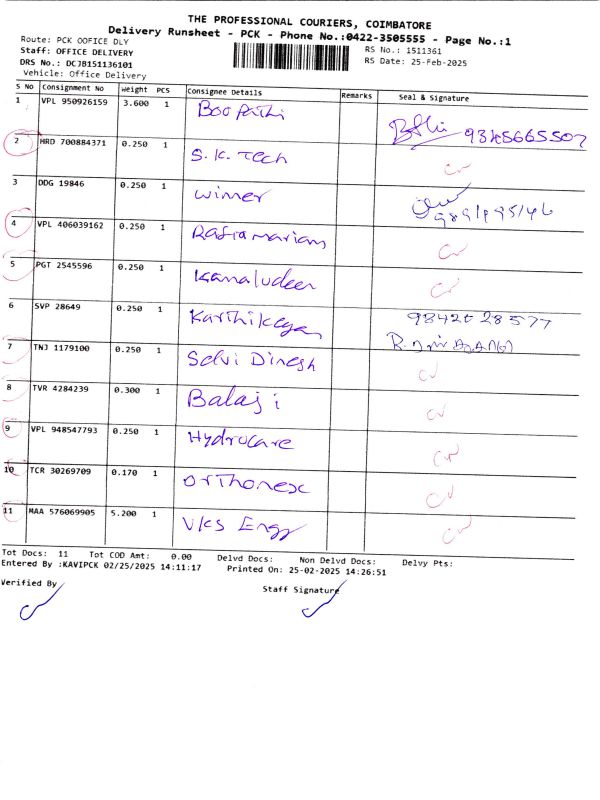 THE PROFESSIONAL COURIERS, COIMBATORE
Delivery Runsheet - PCK - Phone No.:0422-3505555 - Page No.:1
Route: PCK OOFICE DLY RS No.: 1511361
Staff: OFFICE DELIVERY RS Date: 25-Feb-2025
DRS No.: DCJB151136101
Vehicle: Office Delivery
S No Consignment No Weight PCS Consignee Details Remarks Seal & Signature
1 VPL 950926159 3.600 1 Boopathi
2 HRD 700884371 0.250 1 S.K. Tech
3 DDG 19846 0.250 1 Winner
4 VPL 406039162 0.250 1
5 PGT 2545596 0.250 1 Kamaludeen
6 SVP 28649 0.250 1 Karthikeyan 98420 28577
7 TNJ 1179100 0.250 1 Selvi Dinesh
8 TVR 4284239 0.300 1 Balaji
9 VPL 948547793 0.250 1 Hydrocare
10 TCR 30269709 0.170 1
11 MAA 576069905 5.200 1 VKS Engg
Tot Docs: 11 Tot COD Amt: 0.00 Delvd Docs: Non Delvd Docs: Delvy Pts:
Entered By :KAVIPCK 02/25/2025 14:11:17 Printed On: 25-02-2025 14:26:51
Verified By Staff Signature